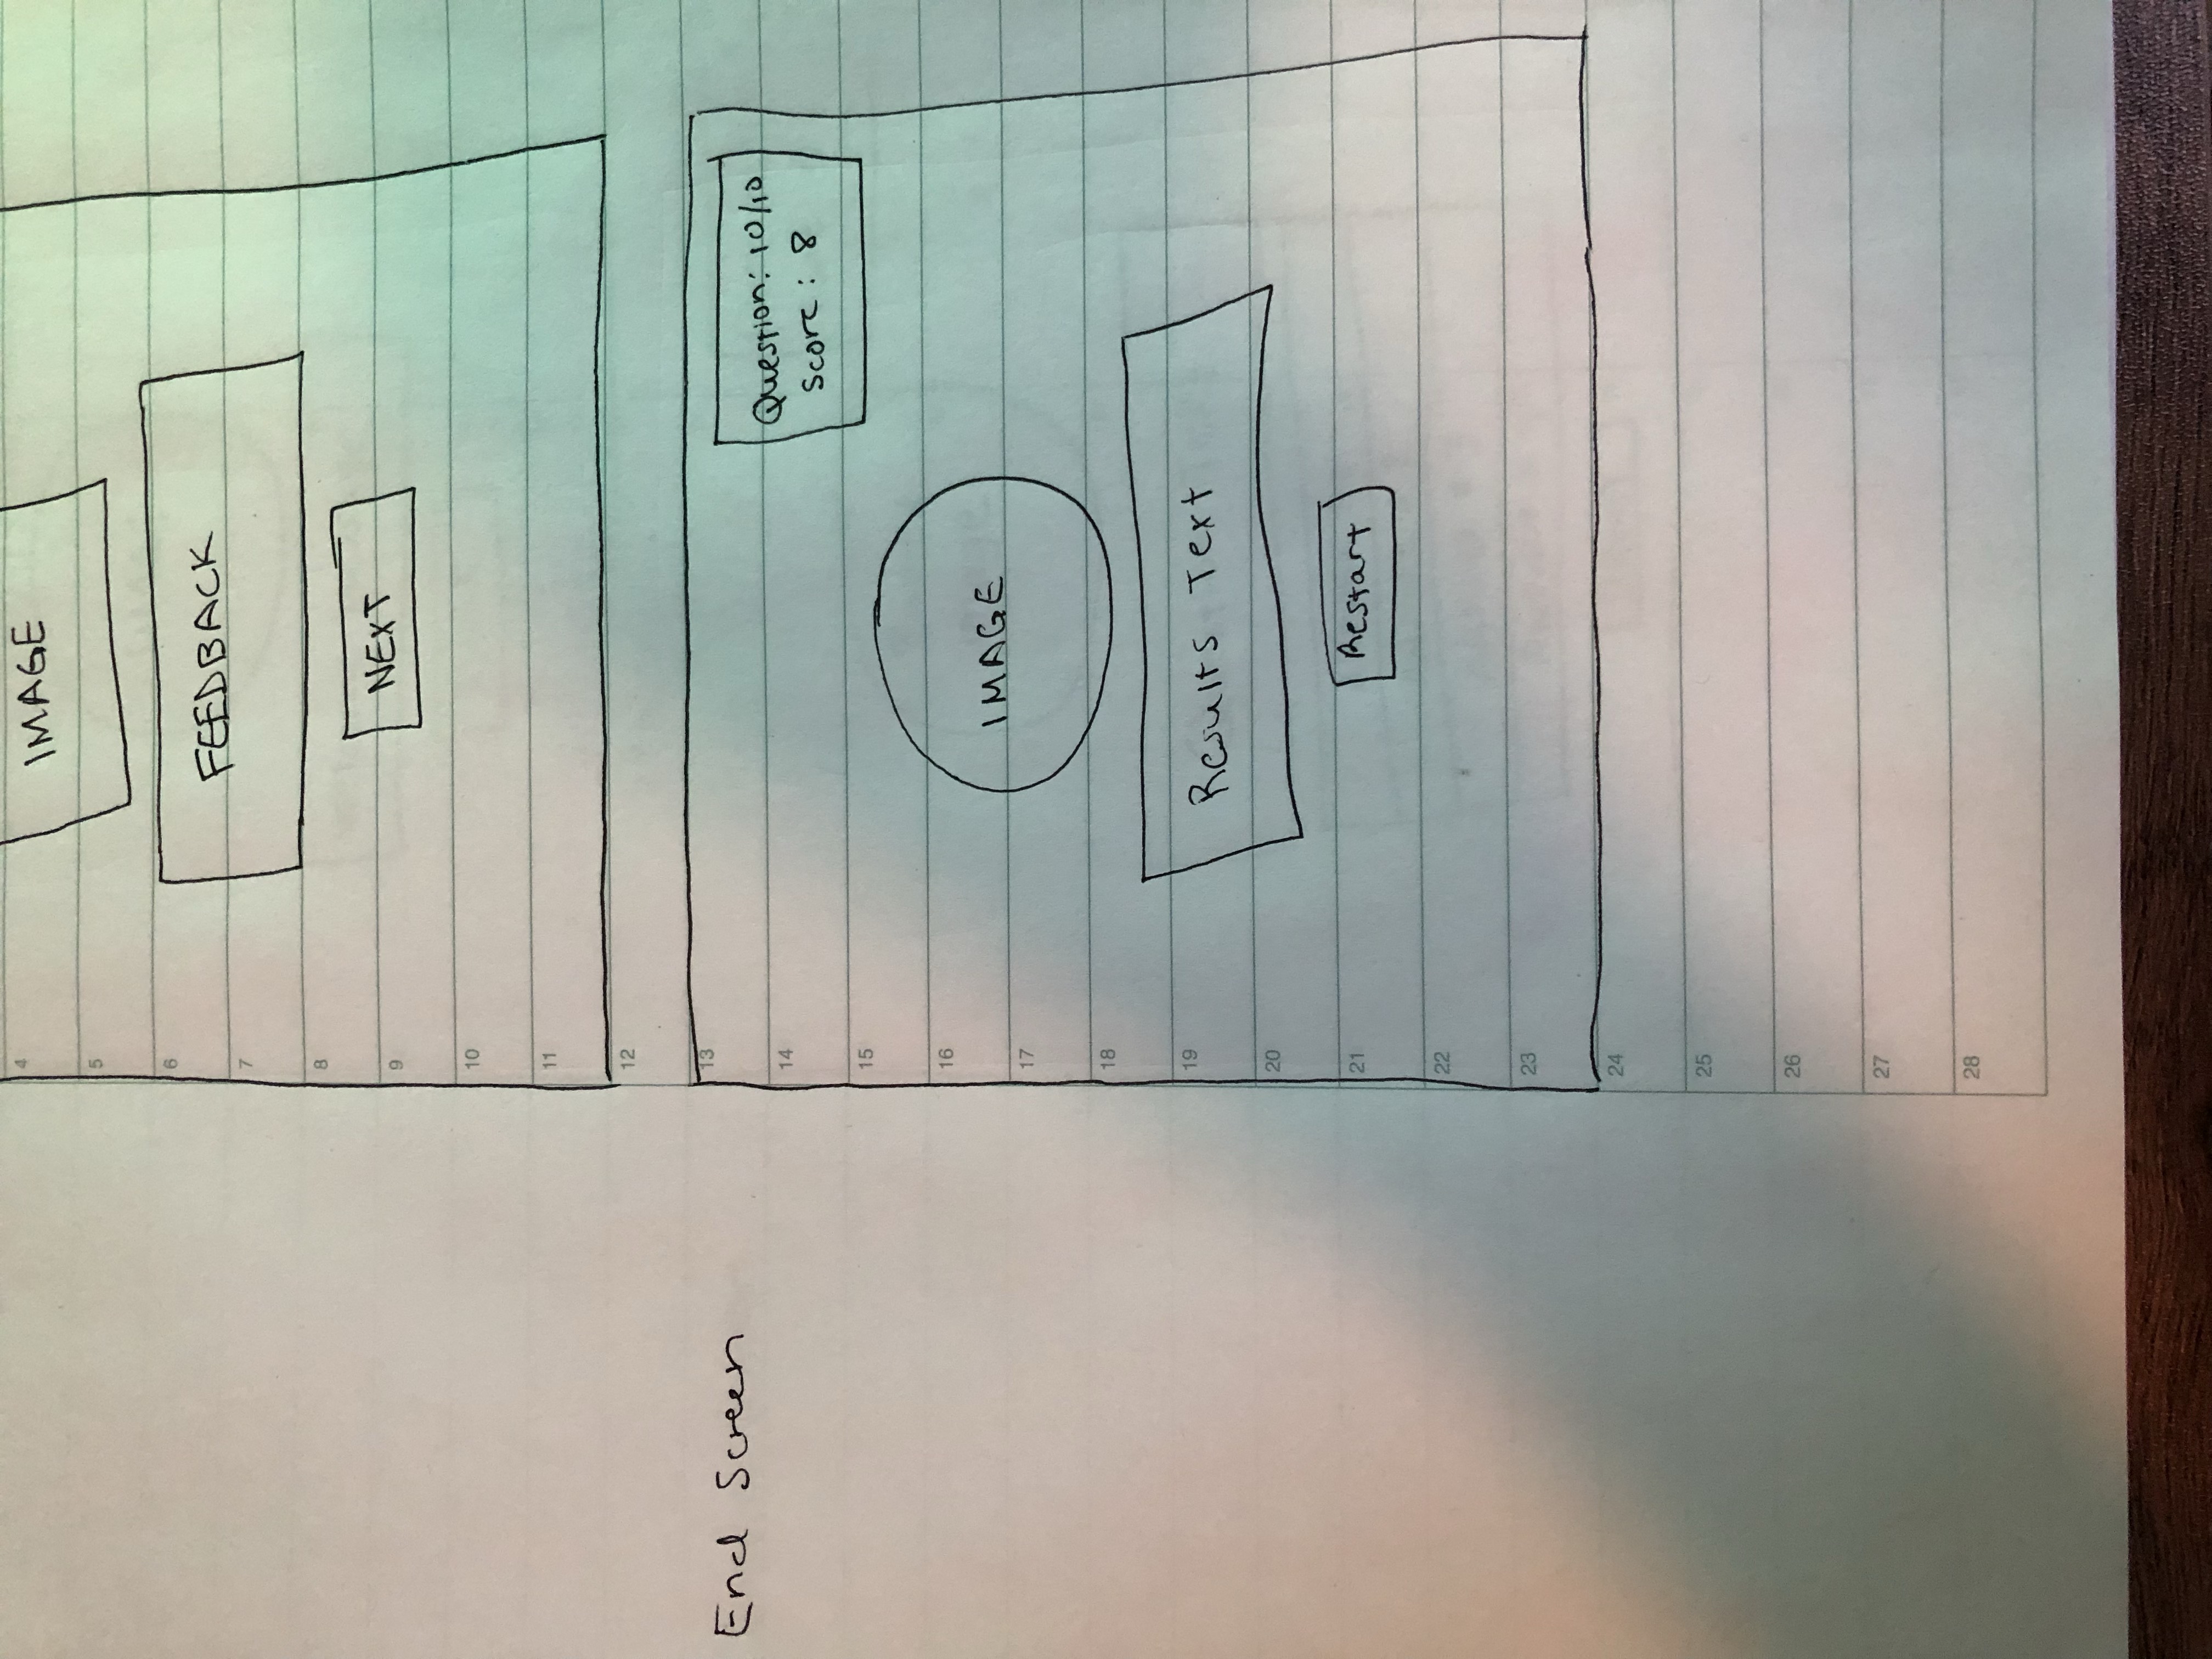 4
IMAGE
5
6
FEEDBACK
7
8
NEXT
9
10
11
12
13
End Screen
Question: 10/10
14
Score: 8
15
16
IMAGE
17
18
19
Results Text
20
21
Restart
22
23
24
25
26
27
28